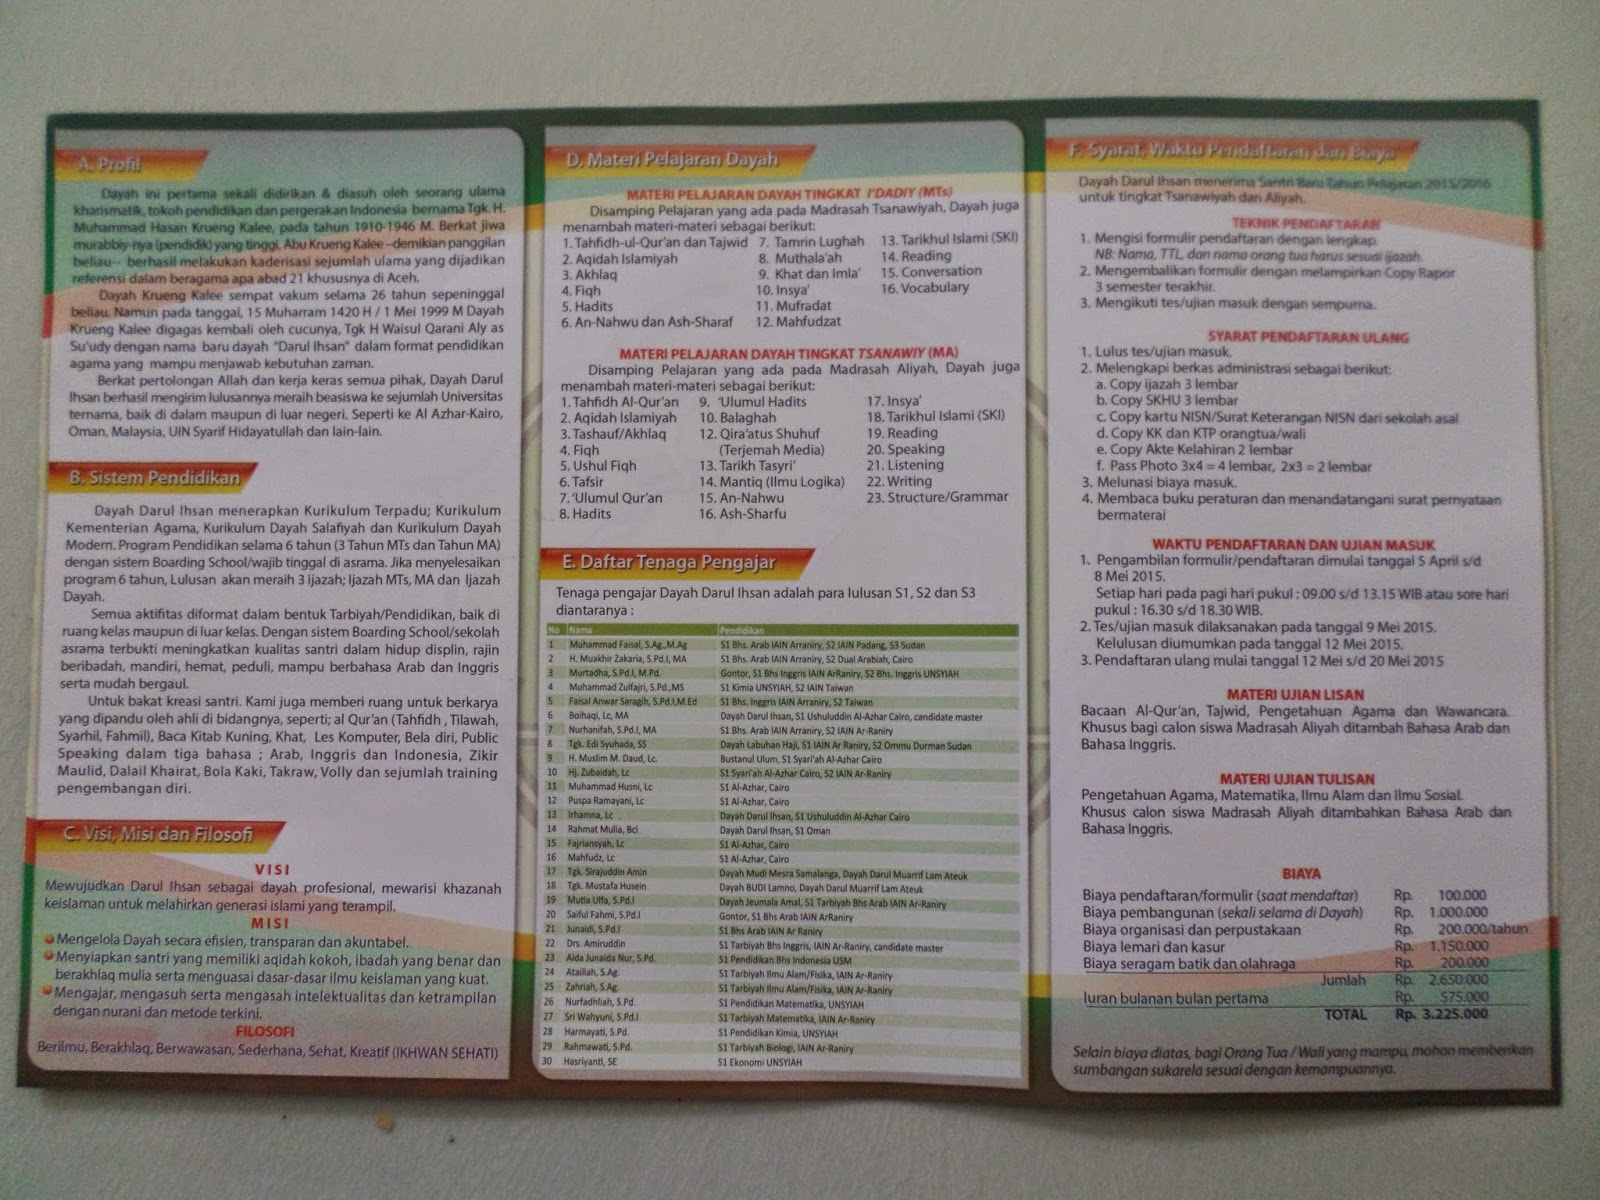 A. Profil
Dayah ini pertama sekali didirikan & diasuh oleh seorang ulama
kharismatik, tokoh pendidikan dan pergerakan Indonesia bernama Tgk. H.
Muhammad Hasan Krueng Kalee, pada tahun 1910-1946 M. Berkat jiwa
murabbiy-nya (pendidik) yang tinggi, Abu Krueng Kalee –demikian panggilan
beliau-- berhasil melakukan kaderisasi sejumlah ulama yang dijadikan
referensi dalam beragama apa abad 21 khususnya di Aceh.
Dayah Krueng Kalee sempat vakum selama 26 tahun sepeninggal
beliau. Namun pada tanggal, 15 Muharram 1420 H / 1 Mei 1999 M Dayah
Krueng Kalee digagas kembali oleh cucunya, Tgk H Waisul Qarani Aly as
Su'udy dengan nama baru dayah "Darul Ihsan" dalam format pendidikan
agama yang mampu menjawab kebutuhan zaman.
Berkat pertolongan Allah dan kerja keras semua pihak, Dayah Darul
Ihsan berhasil mengirim lulusannya meraih beasiswa ke sejumlah Universitas
ternama, baik di dalam maupun di luar negeri. Seperti ke Al Azhar-Kairo,
Oman, Malaysia, UIN Syarif Hidayatullah dan lain-lain.
B. Sistem Pendidikan
Dayah Darul Ihsan menerapkan Kurikulum Terpadu; Kurikulum
Kementerian Agama, Kurikulum Dayah Salafiyah dan Kurikulum Dayah
Modern. Program Pendidikan selama 6 tahun (3 Tahun MTs dan Tahun MA)
dengan sistem Boarding School/wajib tinggal di asrama. Jika menyelesaikan
program 6 tahun, Lulusan akan meraih 3 ijazah; Ijazah MTs, MA dan Ijazah
Dayah.
Semua aktifitas diformat dalam bentuk Tarbiyah/Pendidikan, baik di
ruang kelas maupun di luar kelas. Dengan sistem Boarding School/sekolah
asrama terbukti meningkatkan kualitas santri dalam hidup displin, rajin
beribadah, mandiri, hemat, peduli, mampu berbahasa Arab dan Inggris
serta mudah bergaul.
Untuk bakat kreasi santri. Kami juga memberi ruang untuk berkarya
yang dipandu oleh ahli di bidangnya, seperti; al Qur'an (Tahfidh , Tilawah,
Syarhil, Fahmil), Baca Kitab Kuning, Khat, Les Komputer, Bela diri, Public
Speaking dalam tiga bahasa ; Arab, Inggris dan Indonesia, Zikir
Maulid, Dalail Khairat, Bola Kaki, Takraw, Volly dan sejumlah training
pengembangan diri.
C. Visi, Misi dan Filosofi
VISI
Mewujudkan Darul Ihsan sebagai dayah profesional, mewarisi khazanah
keislaman untuk melahirkan generasi islami yang terampil.
MISI
Mengelola Dayah secara efisien, transparan dan akuntabel.
Menyiapkan santri yang memiliki aqidah kokoh, ibadah yang benar dan
berakhlaq mulia serta menguasai dasar-dasar ilmu keislaman yang kuat.
Mengajar, mengasuh serta mengasah intelektualitas dan ketrampilan
dengan nurani dan metode terkini.
FILOSOFI
Berilmu, Berakhlaq, Berwawasan, Sederhana, Sehat, Kreatif (IKHWAN SEHATI)
D. Materi Pelajaran Dayah
MATERI PELAJARAN DAYAH TINGKAT I'DADIY (MTs)
Disamping Pelajaran yang ada pada Madrasah Tsanawiyah, Dayah juga
menambah materi-materi sebagai berikut:
1. Tahfidh-ul-Qur'an dan Tajwid
2. Aqidah Islamiyah
3. Akhlaq
4. Fiqh
5. Hadits
6. An-Nahwu dan Ash-Sharaf
7. Tamrin Lughah
8. Muthala'ah
9. Khat dan Imla'
10. Insya'
11. Mufradat
12. Mahfudzat
13. Tarikhul Islami (SKI)
14. Reading
15. Conversation
16. Vocabulary
MATERI PELAJARAN DAYAH TINGKAT TSANAWIY (MA)
Disamping Pelajaran yang ada pada Madrasah Aliyah, Dayah juga
menambah materi-materi sebagai berikut:
1. Tahfidh Al-Qur'an
2. Aqidah Islamiyah
3. Tashauf/Akhlaq
4. Fiqh
5. Ushul Fiqh
6. Tafsir
7. 'Ulumul Qur'an
8. Hadits
9. 'Ulumul Hadits
10. Balaghah
12. Qira'atus Shuhuf
(Terjemah Media)
13. Tarikh Tasyri'
14. Mantiq (Ilmu Logika)
15. An-Nahwu
16. Ash-Sharfu
17. Insya'
18. Tarikhul Islami (SKI)
19. Reading
20. Speaking
21. Listening
22. Writing
23. Structure/Grammar
E. Daftar Tenaga Pengajar
Tenaga pengajar Dayah Darul Ihsan adalah para lulusan S1, S2 dan S3
diantaranya :
No Nama Pendidikan
1 Muhammad Faisal, S.Ag.,M.Ag S1 Bhs. Arab IAIN Arraniry, S2 IAIN Padang, S3 Sudan
2 H. Muakhir Zakaria, S.Pd.I, MA S1 Bhs. Arab IAIN Arraniry, S2 Dual Arabiah, Cairo
3 Murtadha, S.Pd.I, M.Pd. Gontor, S1 Bhs Inggris IAIN ArRaniry, S2 Bhs. Inggris UNSYIAH
4 Muhammad Zulfajri, S.Pd.,MS S1 Kimia UNSYIAH, S2 IAIN Taiwan
5 Faisal Anwar Saragih, S.Pd.I,M.Ed S1 Bhs. Inggris IAIN Arraniry, S2 Taiwan
6 Boihaqi, Lc, MA Dayah Darul Ihsan, S1 Ushuluddin Al-Azhar Cairo, candidate master
7 Nurhanifah, S.Pd.I, MA S1 Bhs. Arab IAIN Arraniry, S2 IAIN Ar-Raniry
8 Tgk. Edi Syuhada, SS Dayah Labuhan Haji, S1 IAIN Ar Raniry, S2 Ommu Durman Sudan
9 H. Muslim M. Daud, Lc. Bustanul Ulum, S1 Syari'ah Al-Azhar Cairo
10 Hj. Zubaidah, Lc S1 Syari'ah Al-Azhar Cairo, S2 IAIN Ar-Raniry
11 Muhammad Husni, Lc S1 Al-Azhar, Cairo
12 Puspa Ramayani, Lc S1 Al-Azhar, Cairo
13 Irhamna, Lc Dayah Darul Ihsan, S1 Ushuluddin Al-Azhar Cairo
14 Rahmat Mulia, Bcl Dayah Darul Ihsan, S1 Oman
15 Fajriansyah, Lc S1 Al-Azhar, Cairo
16 Mahfudz, Lc S1 Al-Azhar, Cairo
17 Tgk. Sirajuddin Amin Dayah Mudi Mesra Samalanga, Dayah Darul Muarrif Lam Ateuk
18 Tgk. Mustafa Husein Dayah BUDI Lamno, Dayah Darul Muarrif Lam Ateuk
19 Mutia Ulfa, S.Pd.I Dayah Jeumala Amal, S1 Tarbiyah Bhs Arab IAIN Ar-Raniry
20 Saiful Fahmi, S.Pd.I Gontor, S1 Bhs Arab IAIN ArRaniry
21 Junaidi, S.Pd.I S1 Bhs Arab IAIN Ar Raniry
22 Drs. Amiruddin S1 Tarbiyah Bhs Inggris, IAIN Ar-Raniry, candidate master
23 Aida Junaida Nur, S.Pd. S1 Pendidikan Bhs Indonesia USM
24 Ataillah, S.Ag. S1 Tarbiyah Ilmu Alam/Fisika, IAIN Ar-Raniry
25 Zahriah, S.Ag. S1 Tarbiyah Ilmu Alam/Fisika, IAIN Ar-Raniry
26 Nurfadhliah, S.Pd. S1 Pendidikan Matematika, UNSYIAH
27 Sri Wahyuni, S.Pd.I S1 Tarbiyah Matematika, IAIN Ar-Raniry
28 Harmayati, S.Pd. S1 Pendidikan Kimia, UNSYIAH
29 Rahmawati, S.Pd. S1 Tarbiyah Biologi, IAIN Ar-Raniry
30 Hasriyanti, SE S1 Ekonomi UNSYIAH
F. Syarat, Waktu Pendaftaran dan Biaya
Dayah Darul Ihsan menerima Santri Baru Tahun Pelajaran 2015/2016
untuk tingkat Tsanawiyah dan Aliyah.
TEKNIK PENDAFTARAN
1. Mengisi formulir pendaftaran dengan lengkap.
NB: Nama, TTL, dan nama orang tua harus sesuai ijazah.
2. Mengembalikan formulir dengan melampirkan Copy Rapor
3 semester terakhir.
3. Mengikuti tes/ujian masuk dengan sempurna.
SYARAT PENDAFTARAN ULANG
1. Lulus tes/ujian masuk.
2. Melengkapi berkas administrasi sebagai berikut:
a. Copy ijazah 3 lembar
b. Copy SKHU 3 lembar
c. Copy kartu NISN/Surat Keterangan NISN dari sekolah asal
d. Copy KK dan KTP orangtua/wali
e. Copy Akte Kelahiran 2 lembar
f. Pass Photo 3x4 = 4 lembar, 2x3 = 2 lembar
3. Melunasi biaya masuk.
4. Membaca buku peraturan dan menandatangani surat pernyataan
bermaterai
WAKTU PENDAFTARAN DAN UJIAN MASUK
1. Pengambilan formulir/pendaftaran dimulai tanggal 5 April s/d
8 Mei 2015.
Setiap hari pada pagi hari pukul : 09.00 s/d 13.15 WIB atau sore hari
pukul : 16.30 s/d 18.30 WIB.
2. Tes/ujian masuk dilaksanakan pada tanggal 9 Mei 2015.
Kelulusan diumumkan pada tanggal 12 Mei 2015.
3. Pendaftaran ulang mulai tanggal 12 Mei s/d 20 Mei 2015
MATERI UJIAN LISAN
Bacaan Al-Qur'an, Tajwid, Pengetahuan Agama dan Wawancara.
Khusus bagi calon siswa Madrasah Aliyah ditambah Bahasa Arab dan
Bahasa Inggris.
MATERI UJIAN TULISAN
Pengetahuan Agama, Matematika, Ilmu Alam dan Ilmu Sosial.
Khusus calon siswa Madrasah Aliyah ditambahkan Bahasa Arab dan
Bahasa Inggris.
BIAYA
Biaya pendaftaran/formulir (saat mendaftar) Rp. 100.000
Biaya pembangunan (sekali selama di Dayah) Rp. 1.000.000
Biaya organisasi dan perpustakaan Rp. 200.000/tahun
Biaya lemari dan kasur Rp. 1.150.000
Biaya seragam batik dan olahraga Rp. 200.000
Jumlah Rp. 2.650.000
Iuran bulanan bulan pertama Rp. 575.000
TOTAL Rp. 3.225.000
Selain biaya diatas, bagi Orang Tua / Wali yang mampu, mohon memberikan
sumbangan sukarela sesuai dengan kemampuannya.